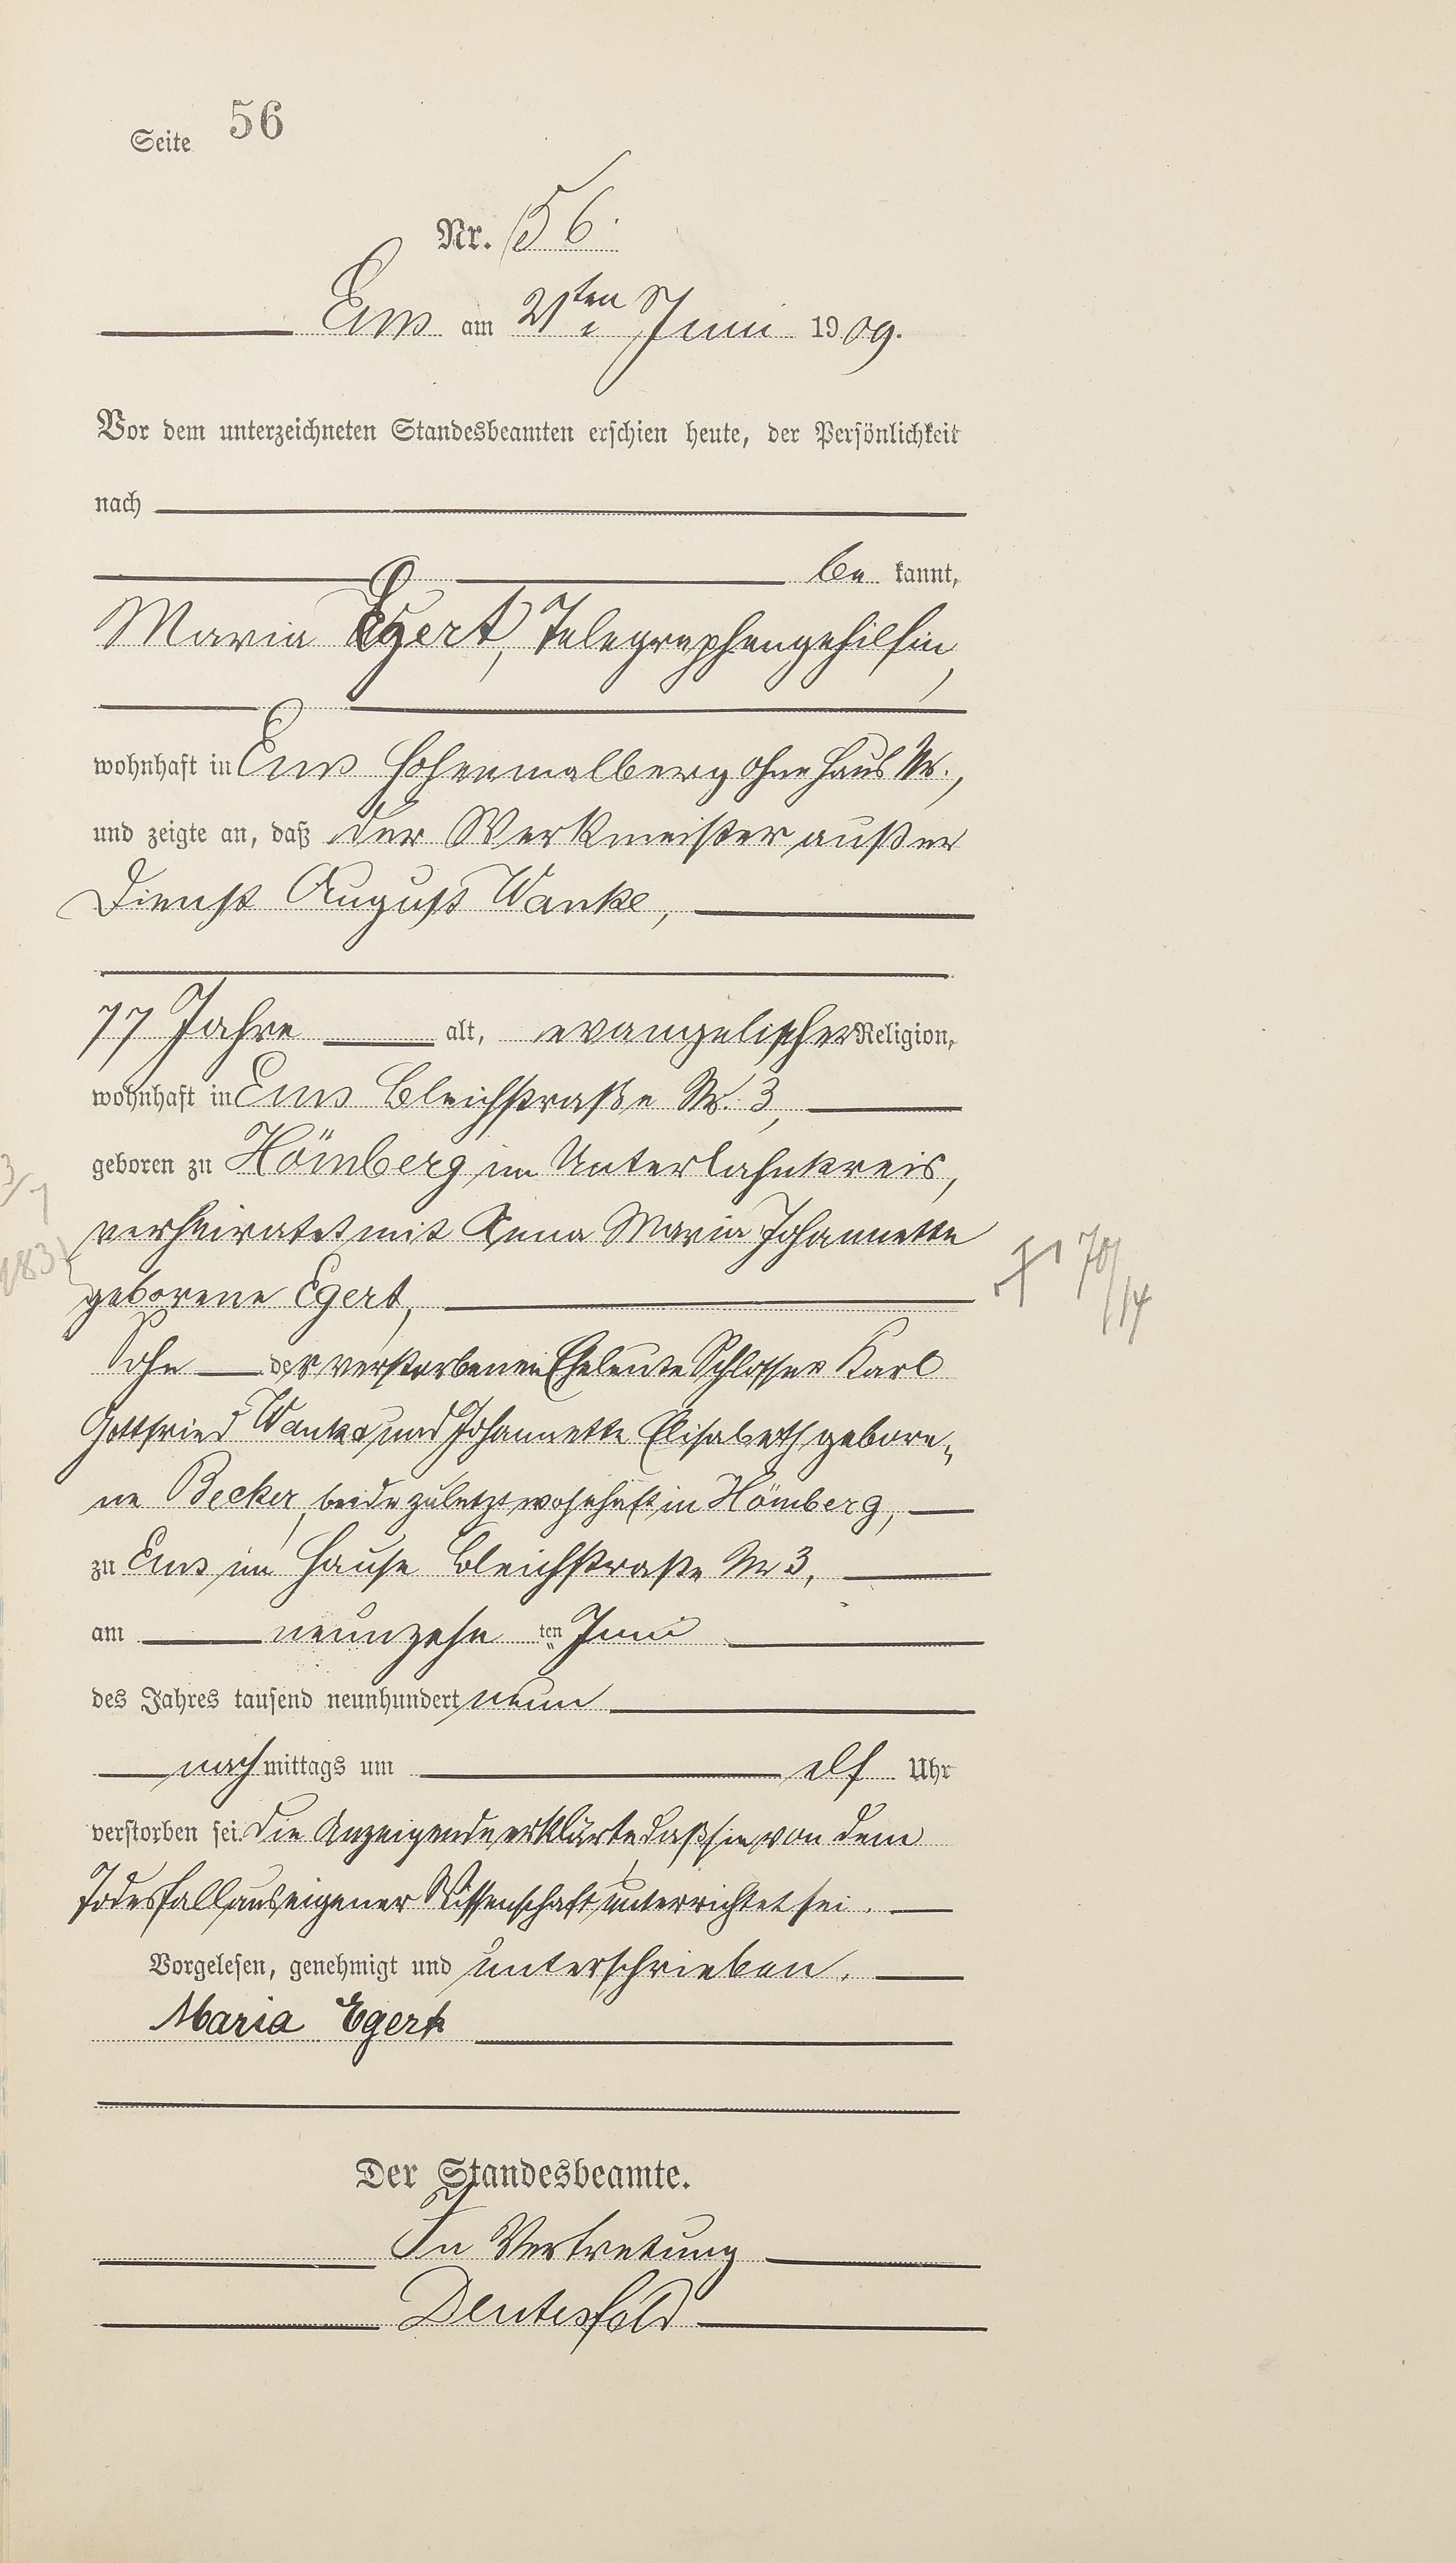 Seite 56
Nr. 56.
Ems am 21ten Juni 1909.
Vor dem unterzeichneten Standesbeamten erschien heute, der Persönlichkeit
nach
be kannt,
Maria Egert, Telegraphengehilfin,
wohnhaft in Ems Hohenmalberg ohne Haus Nr.,
und zeigte an, daß der Werkmeister außer
Dienst August Wanke,
77 Jahre alt, evangelischer Religion,
wohnhaft in Ems Bleichstraße Nr. 3,
geboren zu Hömberg im Unterlahnkreis,
verheiratet mit Anna Maria Johannette
geborene Egert,
† 70/14
Sohn der verstorbenen Eheleute Schlosser Karl
Gottfried Wanke und Johannette Elisabeth gebore-
ne Becker, beide zuletzt wohnhaft in Hömberg,
zu Ems im Hause Bleichstraße Nr 3,
am neunzehn ten Juni
des Jahres tausend neunhundert neun
nach mittags um elf Uhr
verstorben sei. Die Anzeigende erklärte, daß sie von dem
Todesfall aus eigener Wissenschaft unterrichtet sei.
Vorgelesen, genehmigt und unterschrieben.
Maria Egert
Der Standesbeamte.
In Vertretung